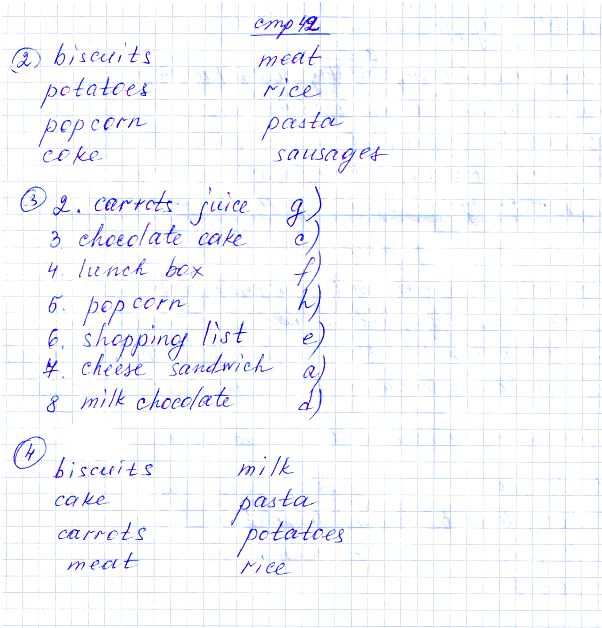 стр 42
② biscuits meat
potatoes rice
popcorn pasta
coke sausages
③ 2. carrots juice g)
3 chocolate cake c)
4. lunch box f)
5. popcorn h)
6. shopping list e)
7. cheese sandwich a)
8 milk chocolate d)
④
biscuits milk
cake pasta
carrots potatoes
meat rice